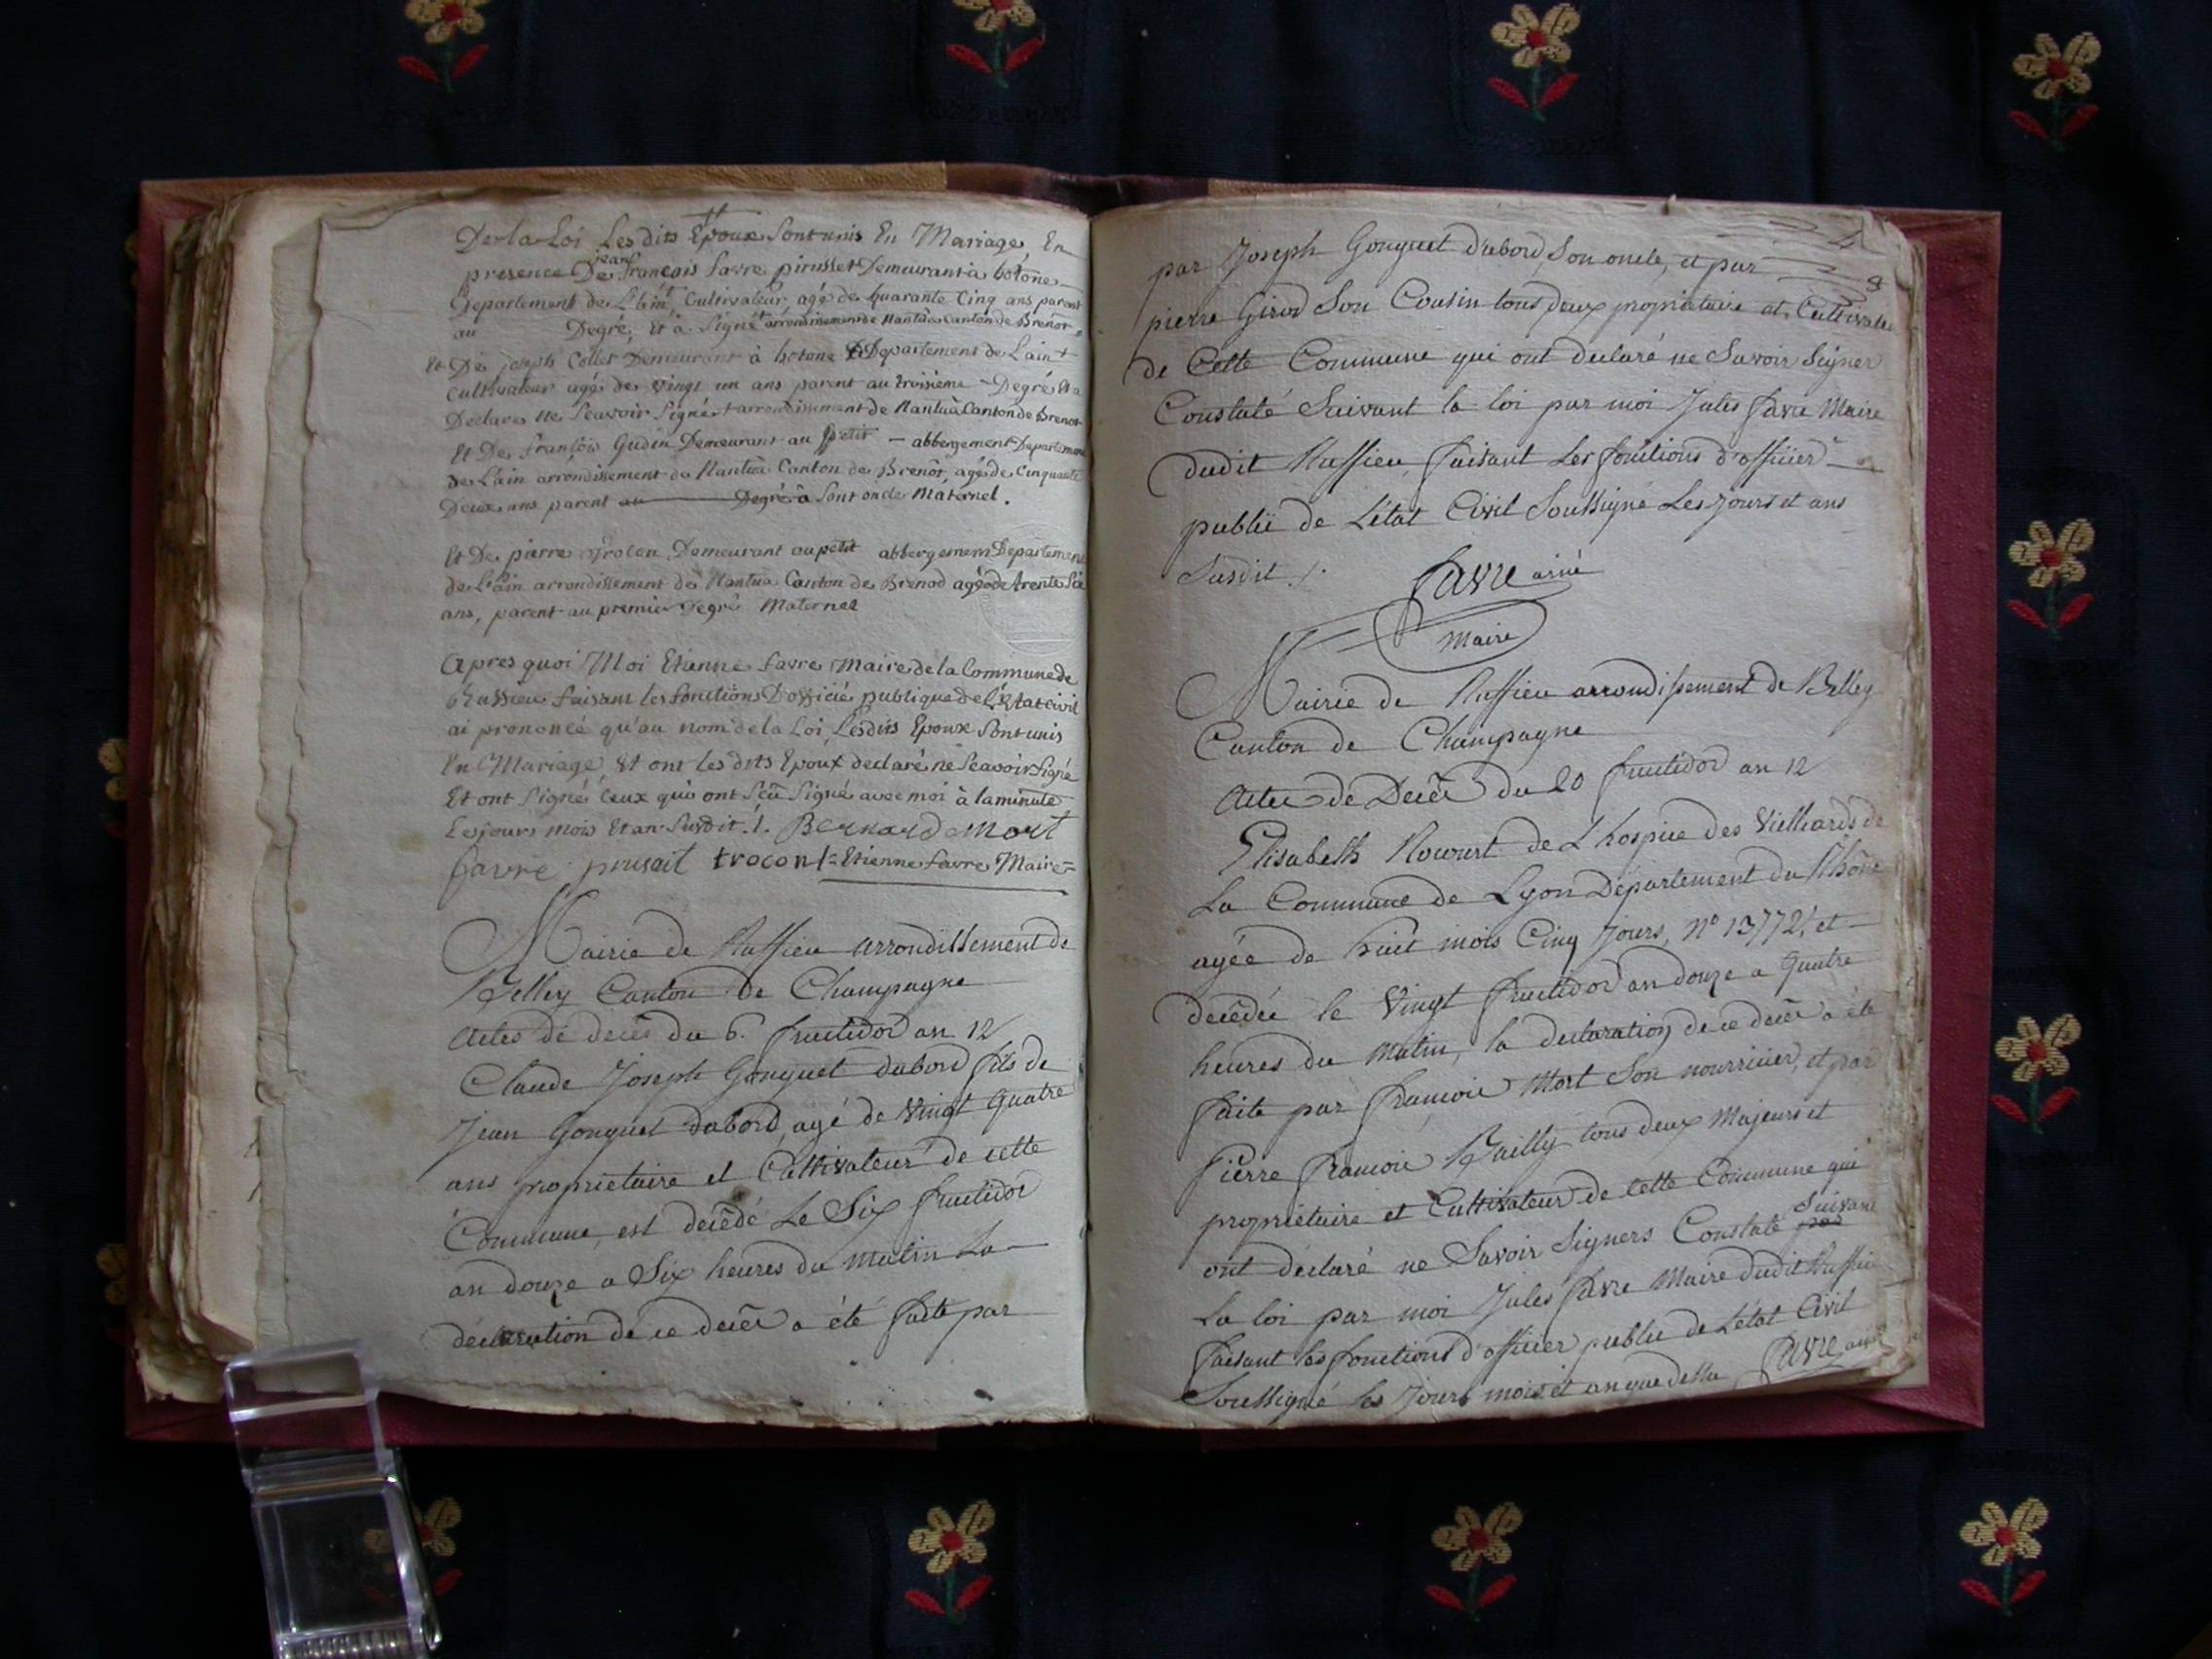 De la Loi Les dits Epoux Sont unis En Mariage En
presence De jean francois favre pirusset Demeurant à hotone
Departement de L'ain, Cultivateur, agé de quarante Cinq ans parent
au Degré, Et a Signé + arrondissement de Nantua Canton de Brenot
Et De joseph Collet Demeurant à hotone Departement de Lain +
Cultivateur agé de vingt un ans parent au troisième Degré Et a
Declare ne Scavoir Signé + arrondissement de Nantua Canton de Brenot
Et De françois Gudin Demeurant au petit abbergement Departement
de L'ain arrondissement de Nantua Canton de Brenôt, agé de Cinquante
Deux ans parent au Degré à Sont oncle Maternel.
Et De pierre Demeurant au petit abbergement Departement
de L'ain arrondissement de Nantua Canton de Brenod agé de trente Six
ans, parent au premier Degré Maternel
Apres quoi Moi Etienne favre Maire de la Commune de
Russieu faisant les fonctions D'officié publique de l'Etat civil
ai prononcé qu'au nom de la Loi, Lesdits Epoux Sont unis
En Mariage, Et ont les dits Epoux declaré ne Scavoir Signé
Et ont Signé Ceux qui ont Scû Signé avec moi à la minute
Les jours mois Et an Susdit ./. Bernard Mort
favre prusait trocon Etienne favre Maire
Mairie de Ruffieu arrondissement de
Belley Canton de Champagne
Actes de decès du 6. fructidor an 12
Claude Joseph Gonguet dabord fils de
Jean Gonguet dabord, agé de Vingt quatre
ans proprietaire et Cultivateur de cette
Commune, est decêdé Le Six fructidor
an douze a Six heures du matin La
déclaration de ce decès a été faite par
par Joseph Gonguet d'abord, Son oncle, et par
pierre Girod Son Cousin tous deux propriétaire et Cultivateu
de Cette Commune qui ont declaré ne Savoir Signer
Constaté Suivant la loi par moi Jules favre Maire
dudit Ruffieu, faisant Les fonctions d'officier
public de L'état Civil Soussigné Les jours et ans
Susdit ./.
favre ainé
Maire
Mairie de Ruffieu arrondissement de Belley
Canton de Champagne
Acte de Decès du 20 fructidor an 12
Elisabeth de L'hospice des Vieillards de
La Commune de Lyon Département du Rhône
agée de huit mois Cinq Jours, N° 13772, et
decêdée le Vingt fructidor an douze a quatre
heures du matin, la declaration de ce decès a été
faite par francois Mort Son nourricier, et par
Pierre francois Bailly tous deux Majeurs et
propriétaire et Cultivateur de Cette Commune qui
ont déclaré ne Savoir Signers Constaté par Suivant
La loi par moi Jules favre Maire dudit Ruffieu
faisant les fonctions d'officier public de L'état Civil
Soussigné les Jours mois et an que dessu favre ainé